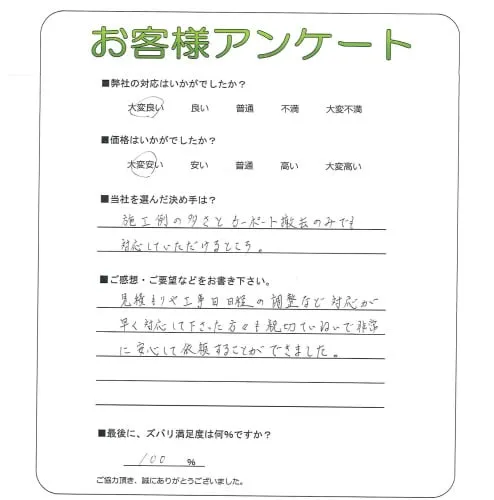 お客様アンケート
■弊社の対応はいかがでしたか？
大変良い 良い 普通 不満 大変不満
■価格はいかがでしたか？
大変安い 安い 普通 高い 大変高い
■当社を選んだ決め手は？
施工例の多さとカーポート撤去のみでも
対応していただけるところ。
■ご感想・ご要望などをお書き下さい。
見積もりや工事日日程の調整など対応が
早く対応して下さった方々も親切ていねいで非常
に安心して依頼することができました。
■最後に、ズバリ満足度は何%ですか？
100 %
ご協力頂き、誠にありがとうございました。